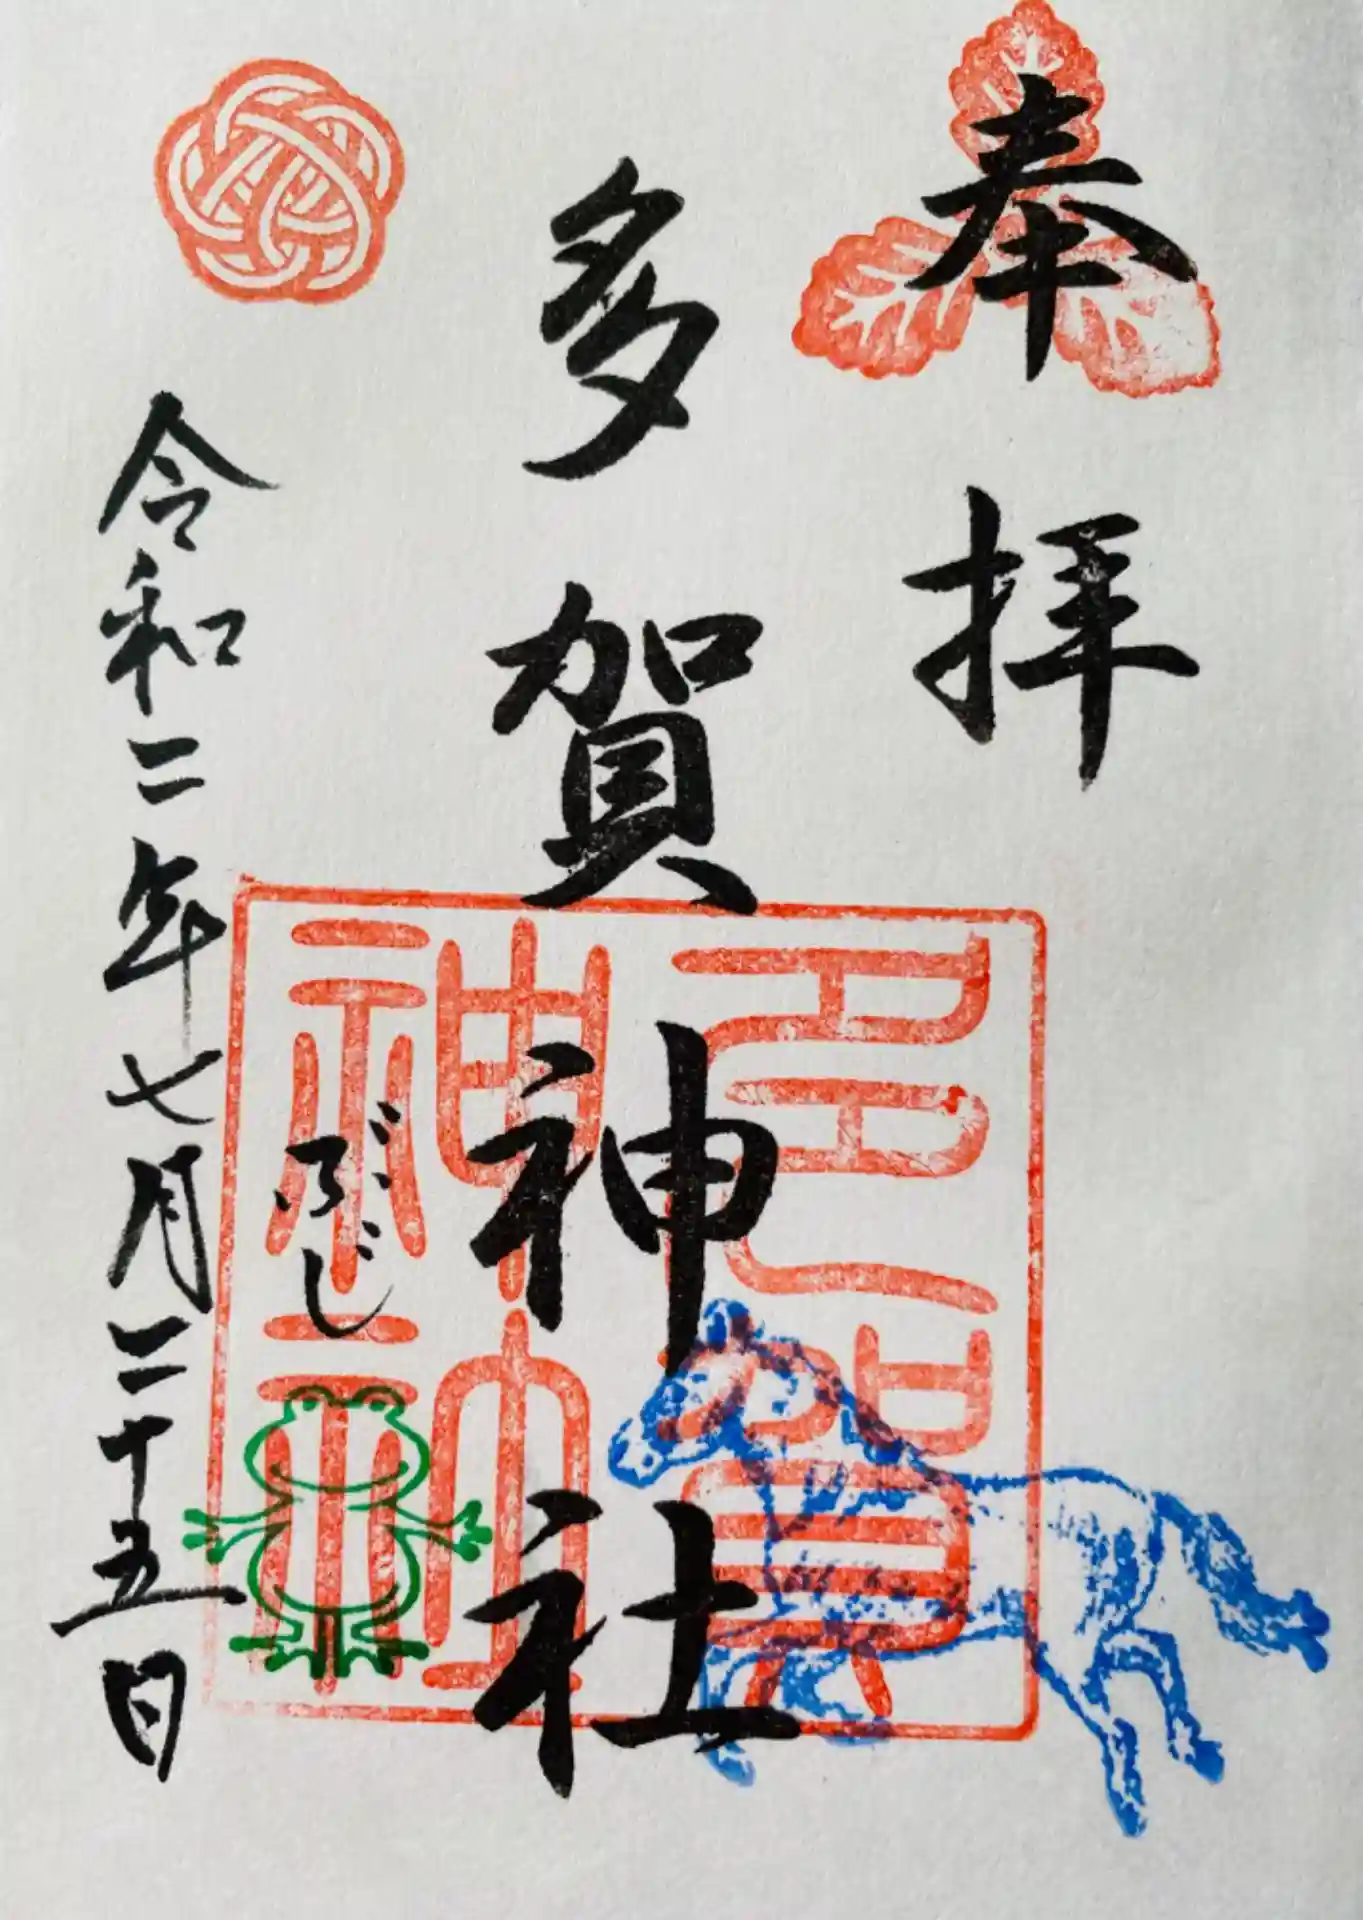 奉拝
多賀神社
多賀神社神印
ぶじ
令和二年七月二十五日